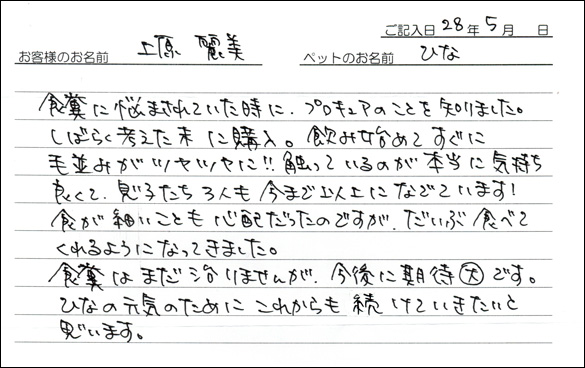 ご記入日 28年 5月 日
お客様のお名前 上原 麗美 ペットのお名前 ひな
食糞に悩まされていた時に、プロキュアのことを知りました。
しばらく考えた末に購入。飲み始めてすぐに
毛並みがツヤツヤに!!触っているのが本当に気持ち
良くて、息子たち3人も今まで以上になでています!
食が細いことも心配だったのですが、だいぶ食べて
くれるようになってきました。
食糞はまだ治りませんが、今後に期待大です。
ひなの元気のためにこれからも続けていきたいと
思います。